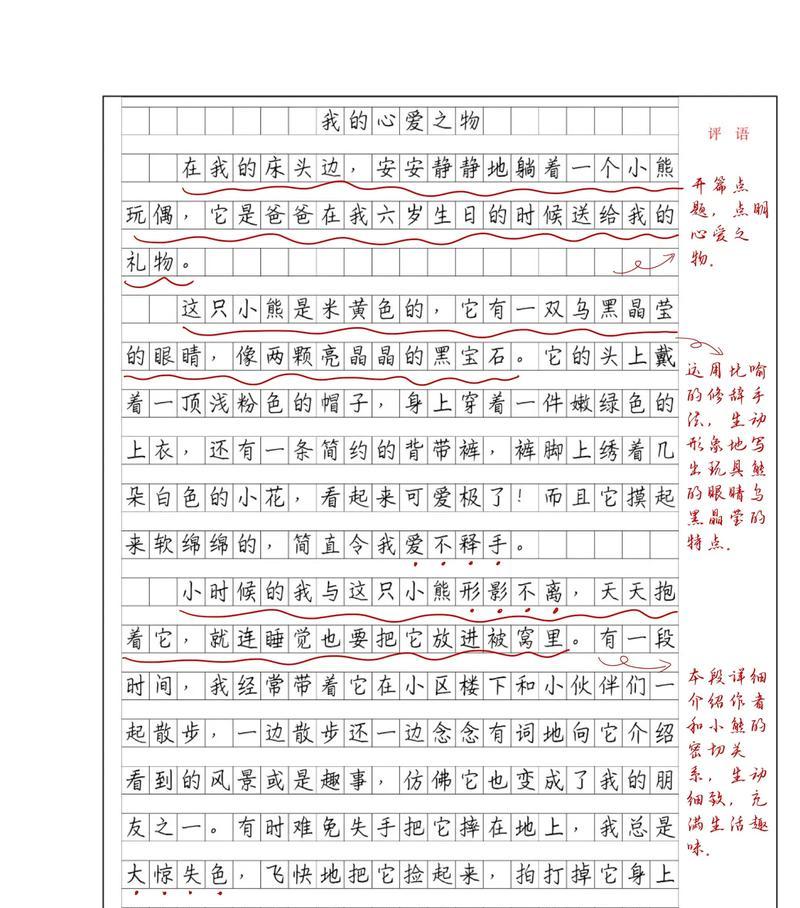 我的心爱之物
评 语
在我的床头边，安安静静地躺着一个小熊
玩偶，它是爸爸在我六岁生日的时候送给我的
礼物。
开篇点
题，点明
心爱之
物.
这只小熊是米黄色的，它有一双乌黑晶莹
的眼睛，像两颗亮晶晶的黑宝石。它的头上戴
着一顶浅粉色的帽子，身上穿着一件嫩绿色的
上衣，还有一条简约的背带裤，裤脚上绣着几
朵白色的小花，看起来可爱极了！而且它摸起
来软绵绵的，简直令我爱不释手。
运用比喻
的修辞手
法，生动
形象地写
出玩具熊
的眼睛乌
黑晶莹的
特点.
小时候的我与这只小熊形影不离，天天抱
着它，就连睡觉也要把它放进被窝里。有一段
时间，我经常带着它在小区楼下和小伙伴们一
起散步，一边散步还一边念念有词地向它介绍
看到的风景或是趣事，仿佛它也变成了我的朋
友之一。有时难免失手把它摔在地上，我总是
大惊失色，飞快地把它捡起来，拍打掉它身上
本段详细
介绍作者
和小熊的
密切关
系，生动
细致，充
满生活趣
味.